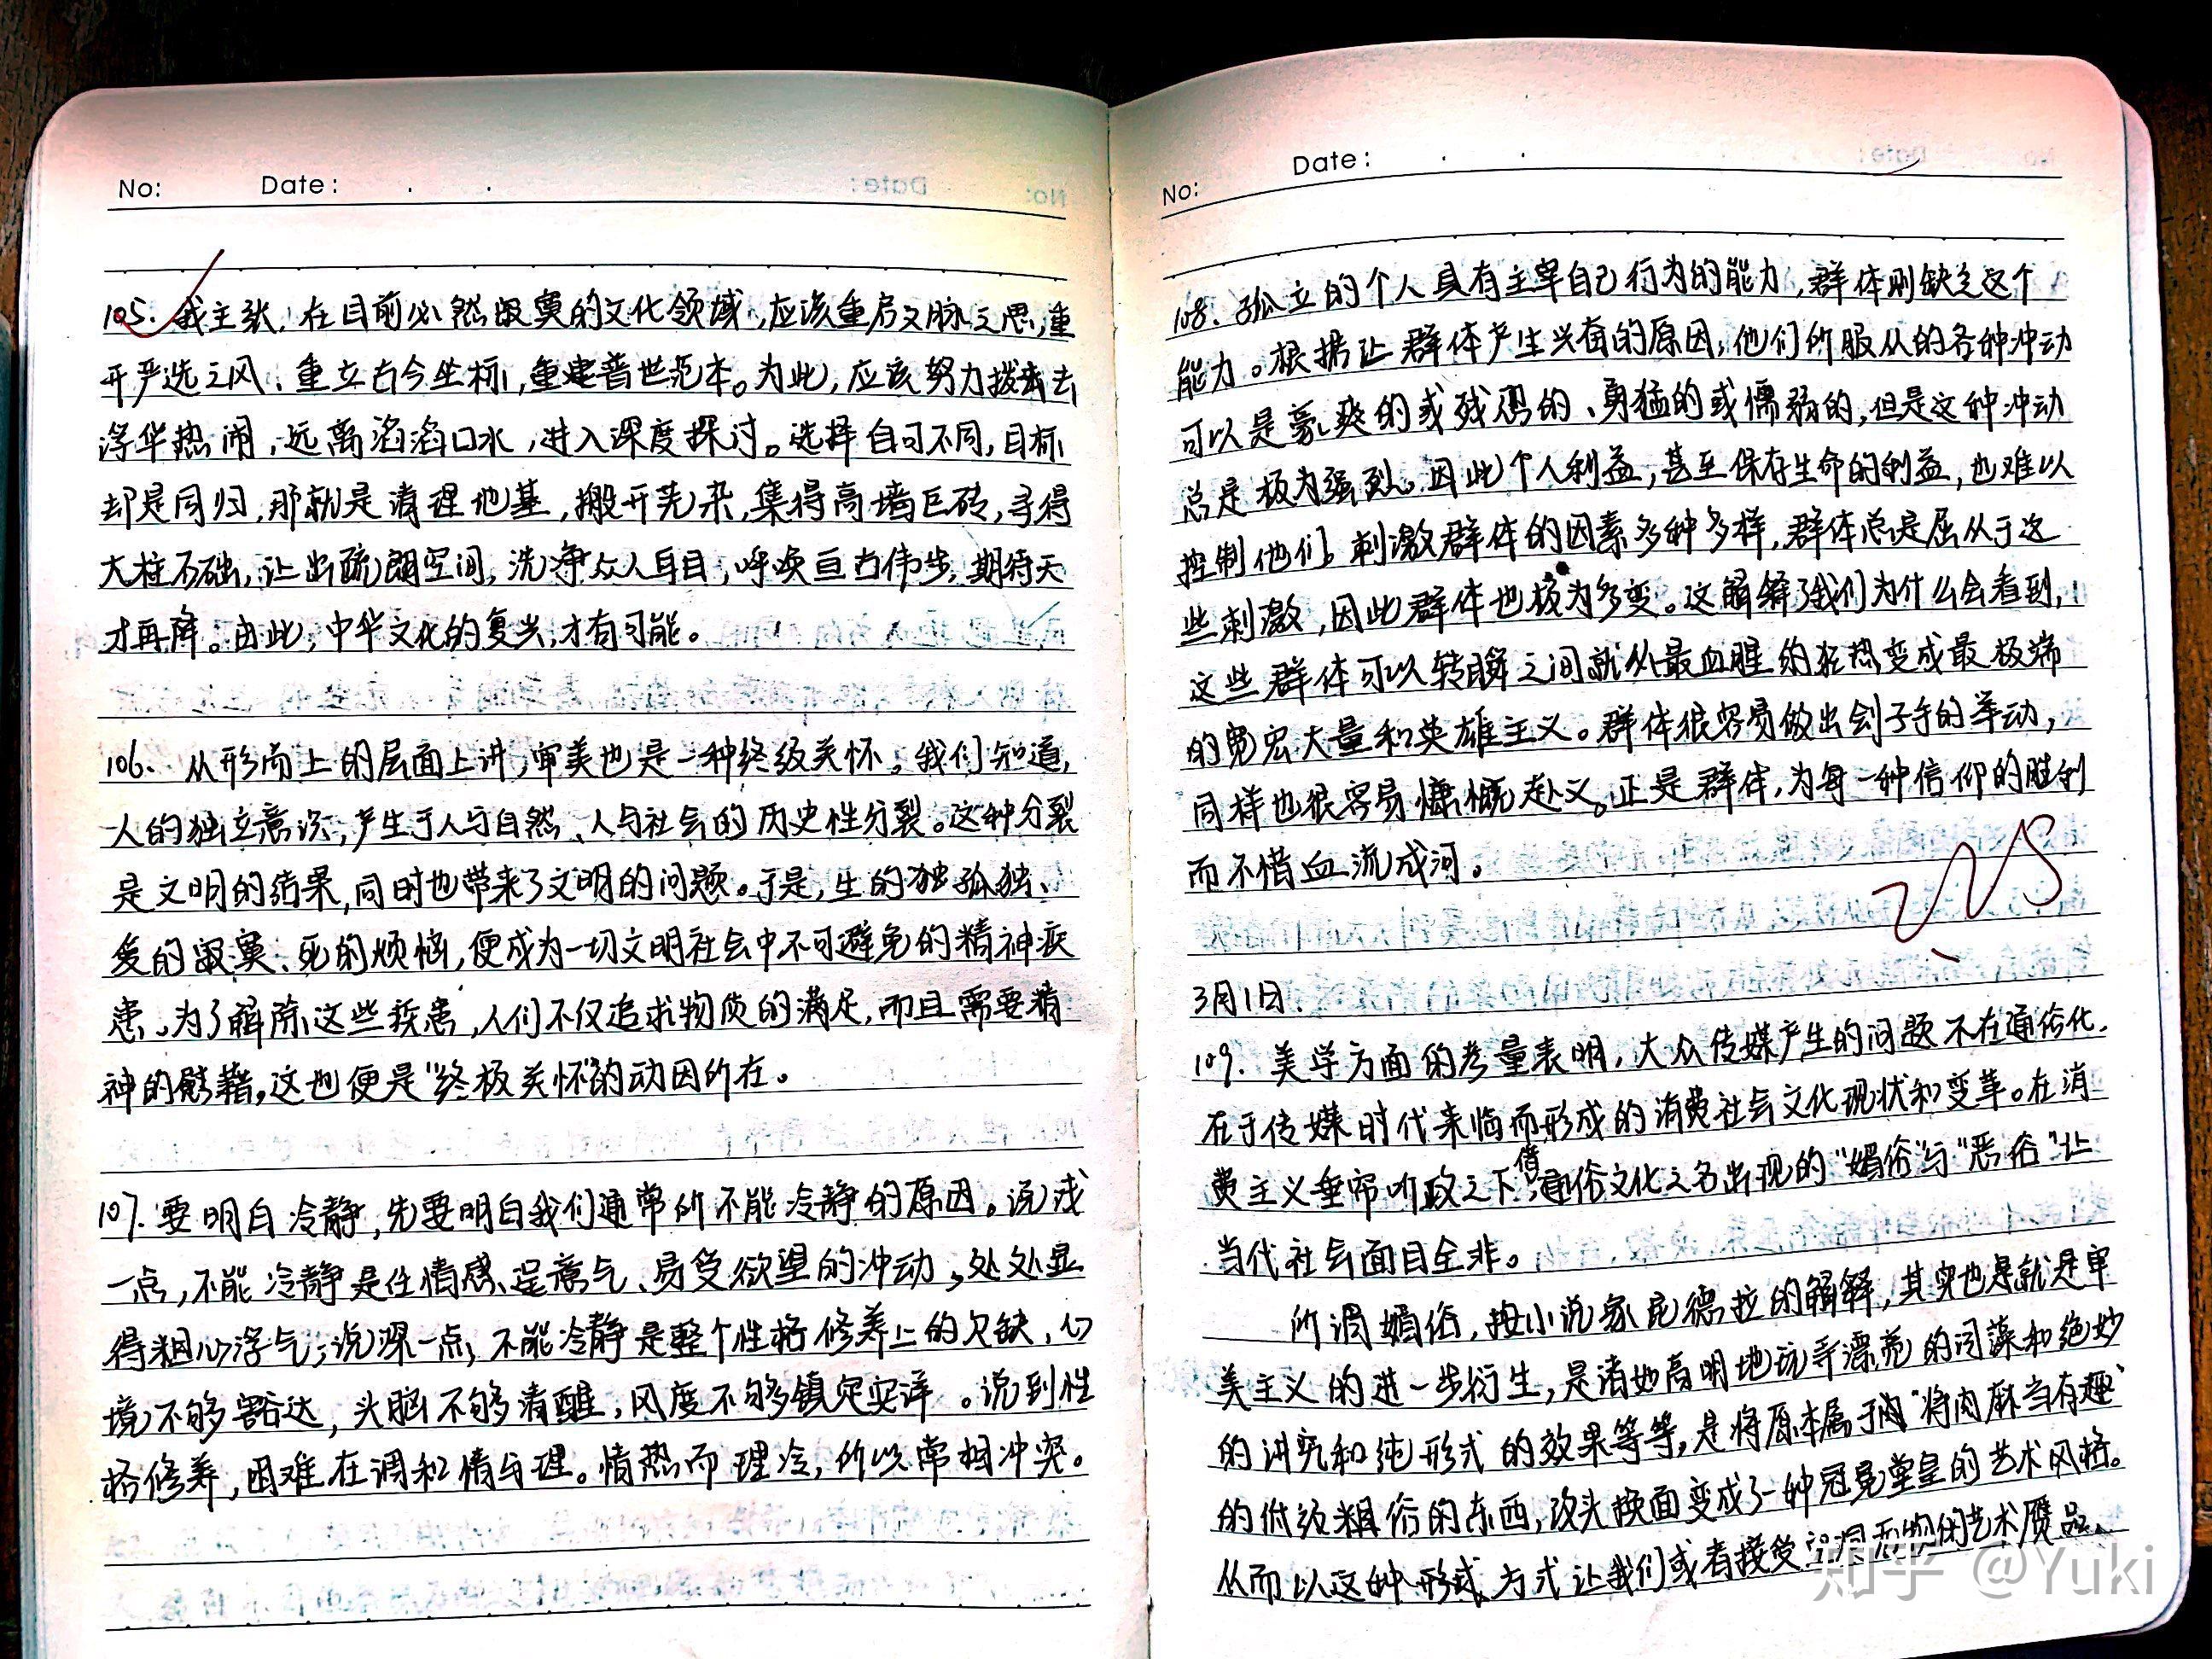 No: Date: . .
105. 我主张，在目前必然寂寞的文化领域，应该重启文脉之思，重
开严选之风、重立古今坐标，重建普世范本。为此，应该努力拨去
浮华热闹，远离滔滔口水，进入深度探讨。选择自可不同，目标
却是同归，那就是清理地基，搬开芜杂，集得高墙巨砖，寻得
大柱石础，让出疏朗空间，洗净众人耳目，呼唤亘古伟步，期待天
才再降。由此，中华文化的复兴，才有可能。
106. 从形而上的层面上讲，审美也是一种终级关怀。我们知道，
人的独立意识，产生于人与自然、人与社会的历史性分裂。这种分裂
是文明的结果，同时也带来了文明的问题。于是，生的独孤独、
爱的寂寞、死的烦恼，便成为一切文明社会中不可避免的精神疾
患。为了解除这些疾患，人们不仅追求物质的满足，而且需要精
神的慰藉。这也便是“终极关怀”的动因所在。
107. 要明白冷静，先要明白我们通常所不能冷静的原因。说浅
一点，不能冷静是任情感、逞意气、易受欲望的冲动，处处显
得粗心浮气；说深一点，不能冷静是整个性格修养上的欠缺，心
境不够豁达，头脑不够清醒，风度不够镇定安详。说到性
格修养，困难在调和情与理。情热而理冷，所以常相冲突。
No: Date: . .
108. 孤立的个人具有主宰自己行为的能力，群体则缺乏这个
能力。根据让群体产生兴奋的原因，他们所服从的各种冲动
可以是豪爽的或残忍的、勇猛的或懦弱的，但是这种冲动
总是极为强烈。因此个人利益，甚至保存生命的利益，也难以
控制他们。刺激群体的因素多种多样，群体总是屈从于这
些刺激，因此群体也极为多变。这解释了我们为什么会看到，
这些群体可以转瞬之间就从最血腥的狂热变成最极端
的宽宏大量和英雄主义。群体很容易做出刽子手的举动，
同样也很容易慷慨赴义。正是群体，为每一种信仰的胜利
而不惜血流成河。
3月1日.
109. 美学方面的考量表明，大众传媒产生的问题不在通俗化，
在于传媒时代来临而形成的消费社会文化现状和变革。在消
费主义垂帘听政之下，借通俗文化之名出现的“媚俗”与“恶俗”让
当代社会面目全非。
所谓媚俗，按小说家昆德拉的解释，其实也是就是审
美主义的进一步衍生，是诸如高明地玩弄漂亮的词藻和绝妙
的讲究和纯形式的效果等等，是将原本属于肉“将肉麻当有趣”
的低级粗俗的东西，改头换面变成了一种冠冕堂皇的艺术风格。
从而以这种形式、方式让我们或者接受空洞无物的艺术赝品、
知乎 @Yuki